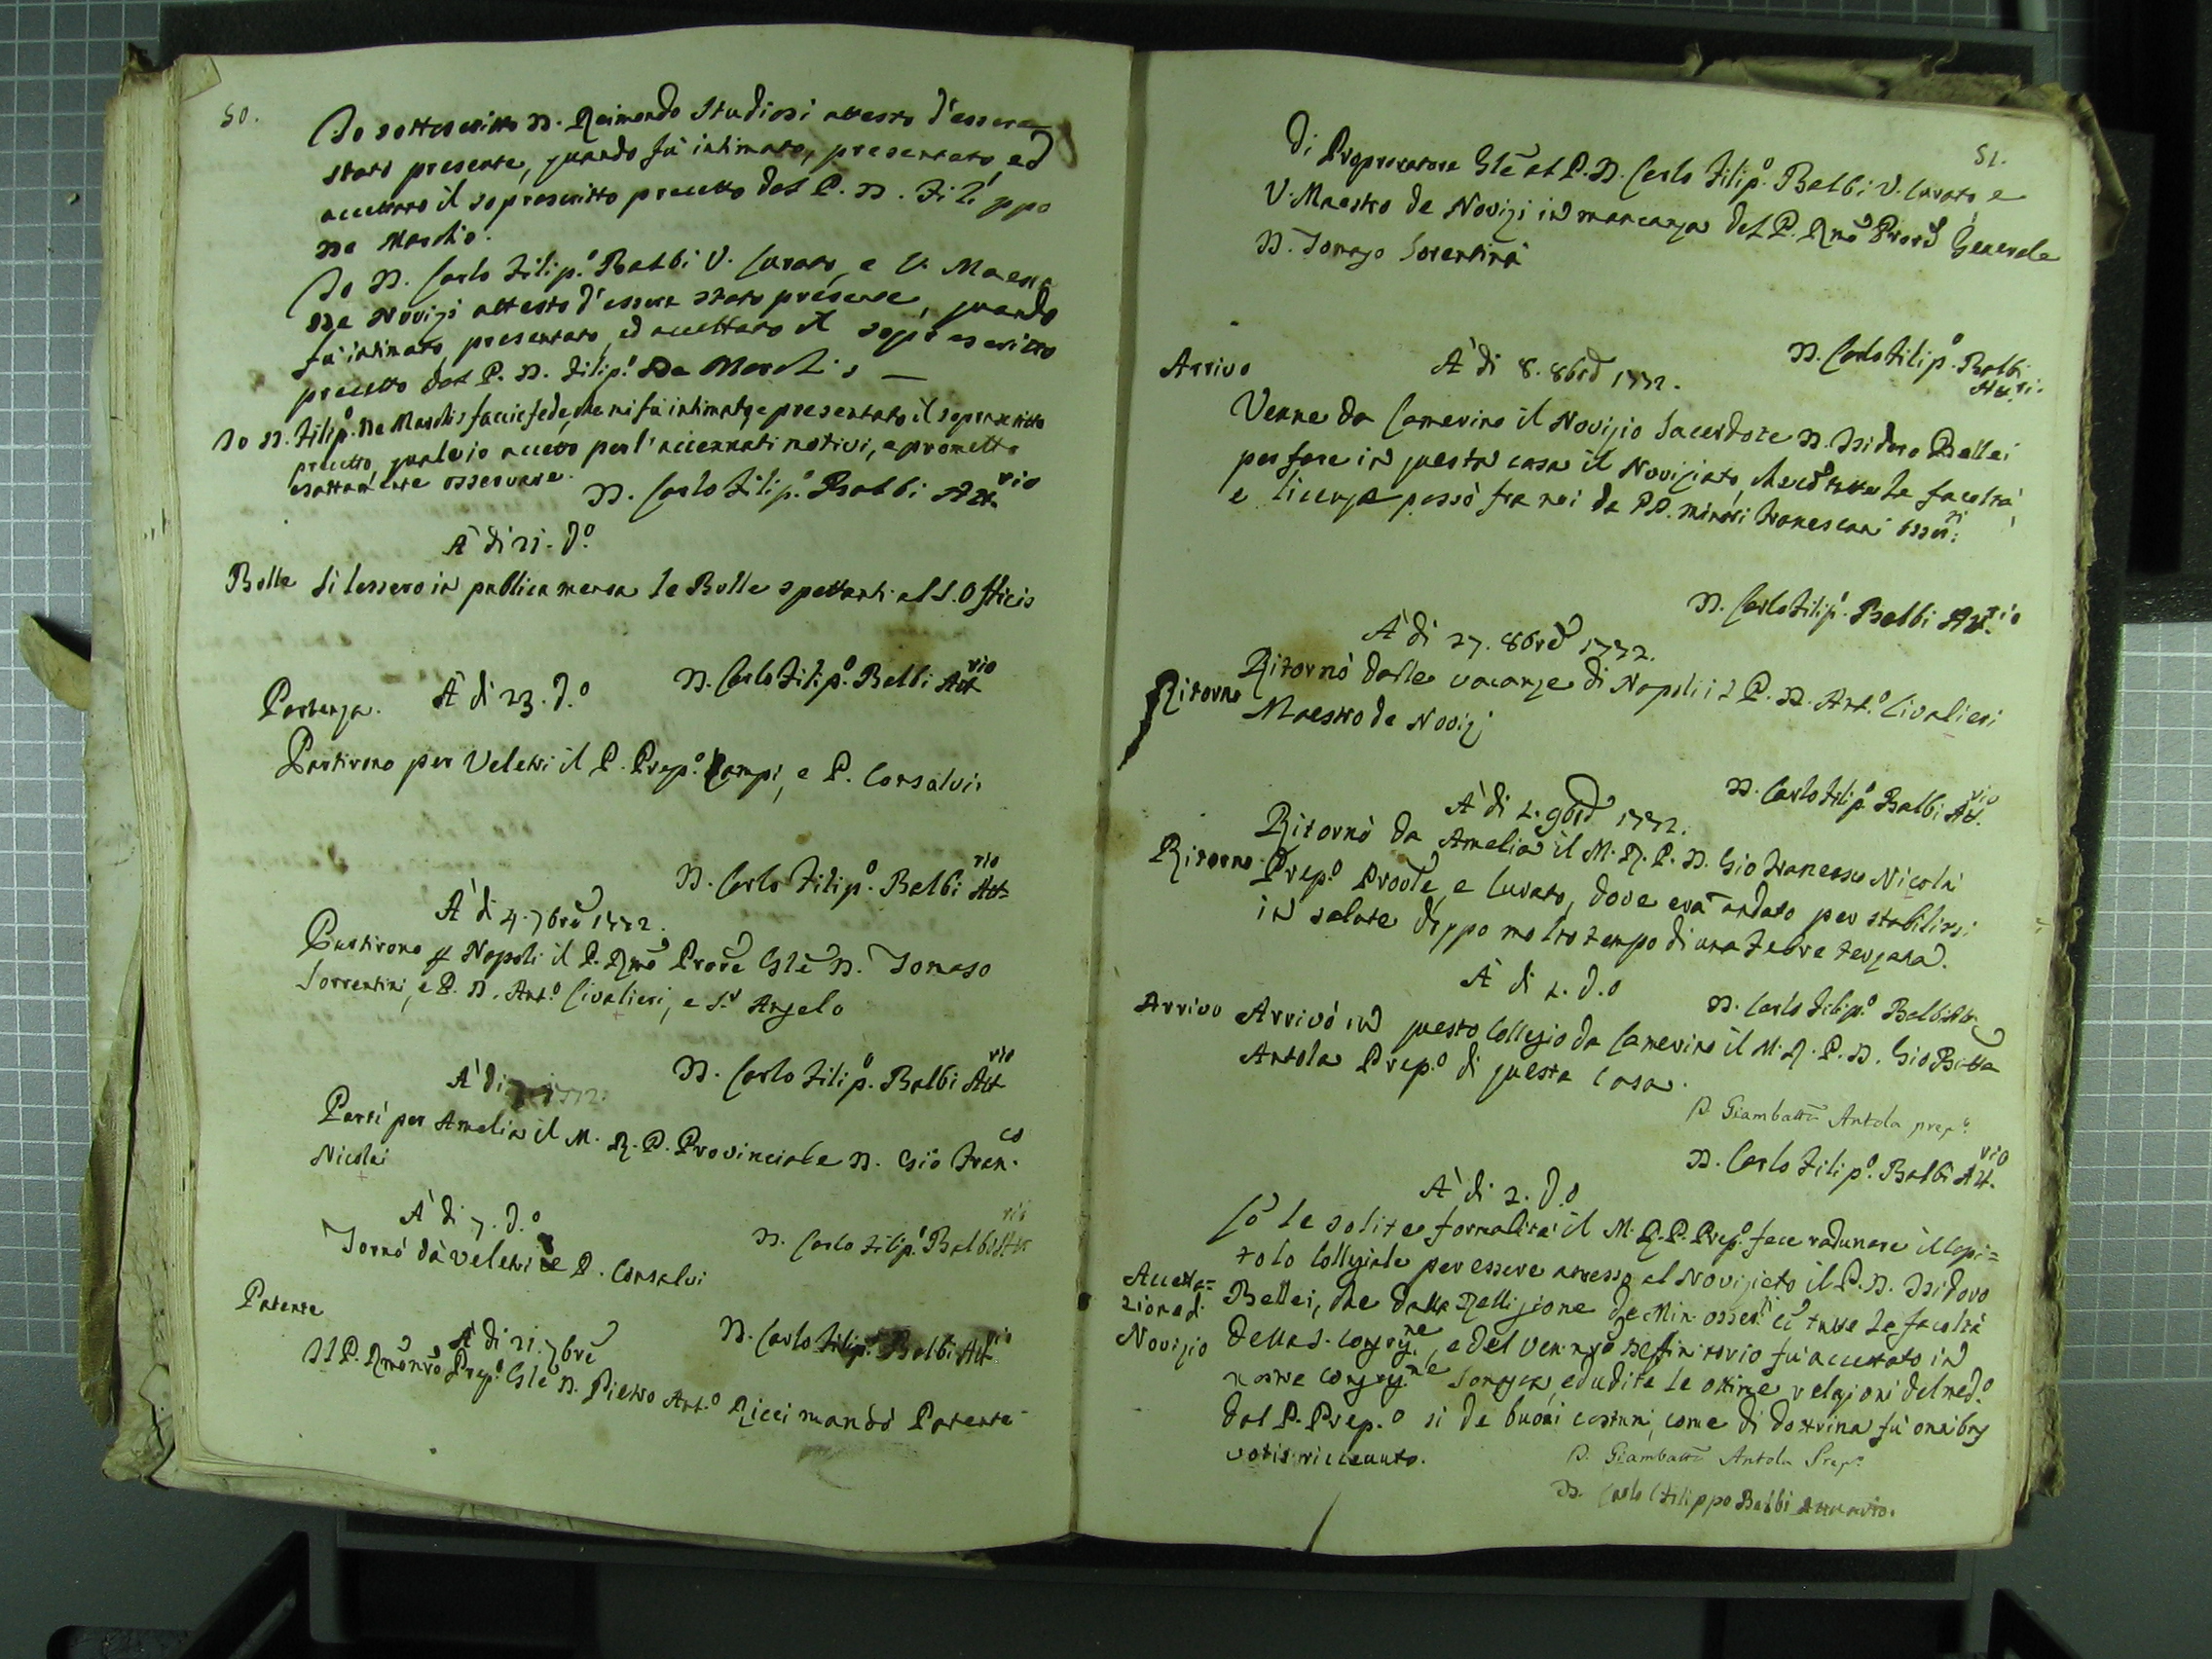 50.
Io sottoscritto D. Raimondo Studiosi attesto d'essere
stato presente, quando fu intimato, presentato, ed
accettato il soprascritto precetto dal P. D. Filippo
De Marchis.
Io D. Carlo Filip.º Balbi V. Curato, e V. Maestro
De Novizi attesto d'essere stato presente, quando
fu intimato, presentato, ed accettato il soprascritto
precetto dal P. D. Filip.º De Marchis —
Io D. Filip.º De Marchis faccio fede, che mi fu intimato, e presentato il soprascritto
precetto, quale io accetto per l'accennati motivi, e prometto
esattamente osservare.
D. Carlo Filip.º Balbi Att.rio
A' di 21. d.º
Bolle Si lessero in publica mensa le Bolle spettanti al S. Officio
D. Carlo Filip.º Balbi Att.rio
Partenza. A' di 23. d.º
Partirono per Veletri il P. Prep.º Campi, e P. Consalvi
D. Carlo Filip.º Balbi Att.rio
A' di 4. 7bre 1772.
Partirono p Napoli il P. Rmo Prore Gle D. Tomaso
Sorrentini, e P. D. Ant.º Civalieri, e S.r Angelo
D. Carlo Filip.º Balbi Att.rio
A' di 1772.
Partì per Amelia il M. R. P. Provinciale D. Gio Fran.co
Nicolai
A' di 7. d.º
D. Carlo Filip.º Balbi Att.rio
Tornò da Veletri il P. Consalvi
D. Carlo Filip.º Balbi Att.rio
Patente
A' di 21. 7bre
Il P. Rmo nro Prep.º Gle D. Pietro Ant.º Ricci mandò Patente
51.
di Proprocuratore Gle al P. D. Carlo Filip.º Balbi V. Curato, e
V. Maestro de Novizi in mancanza del P. Rmo Prore Generale
D. Tomaso Sorentini
D. Carlo Filip.º Balbi
Att.ri.
Arrivo A' di 8. 8bre 1772.
Venne da Camerino il Novizio Sacerdote D. Isidoro Bellei
per fare in questa casa il Noviziato, che con tutte le facoltà,
e licenze passò fra noi da PP. Minori Francescani Osser.ti
D. Carlo Filip.º Balbi Att.rio
A' di 27. 8bre 1772.
Ritorno Ritornò dalle vacanze di Napoli il P. D. Ant.º Civalieri
Maestro de Novizi
D. Carlo Filip.º Balbi Att.rio
A' di 2. 9bre 1772.
Ritorno Ritornò da Amelia il M. R. P. D. Gio Francesco Nicolai
Prep.º Provle, e Curato, dove era andato per stabilirsi
in salute doppo molto tempo di una febre terzana.
A' di 2. d.º
D. Carlo Filip.º Balbi Att.
Arrivo Arrivò in questo Collegio da Camerino il M. R. P. D. Gio Batta
Antola Prep.º di questa casa.
D. Giambatta Antola prep.º
D. Carlo Filip.º Balbi Att.rio
A' di 2. d.º
Cō le solite formalità il M. R. P. Prep.º fece radunare il Capi=
tolo Collegiale per essere amesso al Noviziato il P. D. Isidoro
Accetta=
zione di
Novizio
Bellei, che dalla Relligione de Min. Osser.ti cō tutte le facoltà
della S. Congreg.ne, e del Ven. nro Deffinitorio fu accettato in
nostra Congreg.ne Somasca, ed udite le ottime relazioni del med.º
dal P. Prep.º sì de buoni costumi, come di dottrina fu omnibus
votis riceuuto.
D. Giambatta Antola Prep.º
D. Carlo Filippo Balbi Attuario.